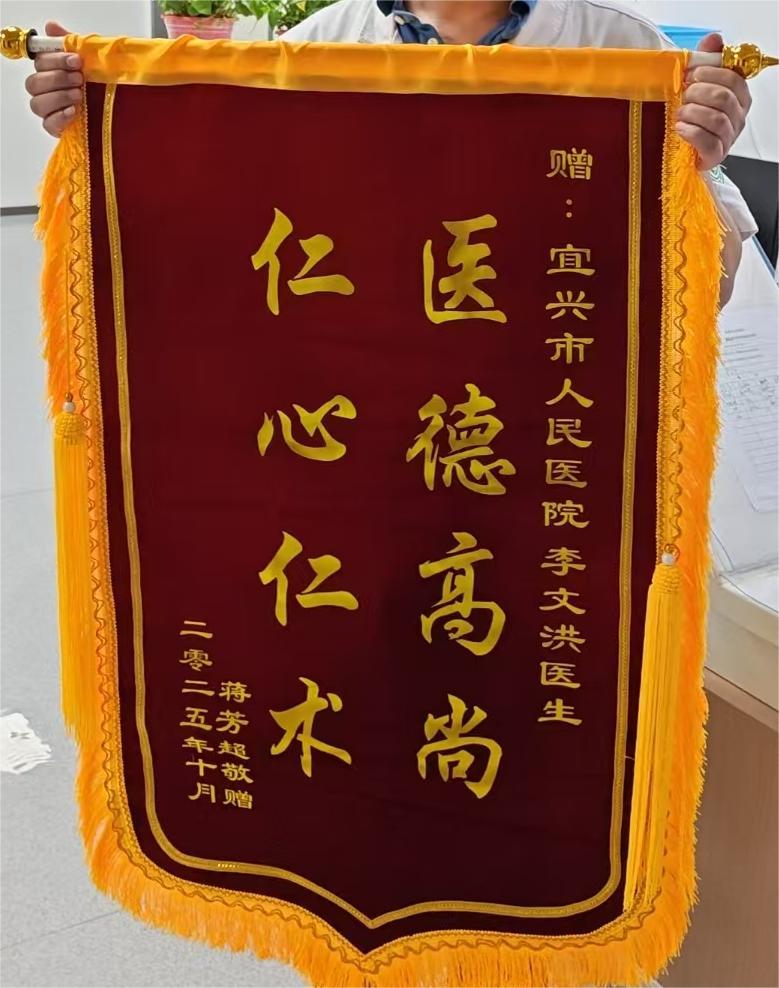 赠：宜兴市人民医院李文洪医生
医德高尚
仁心仁术
蒋芳超敬赠
二零二五年十月